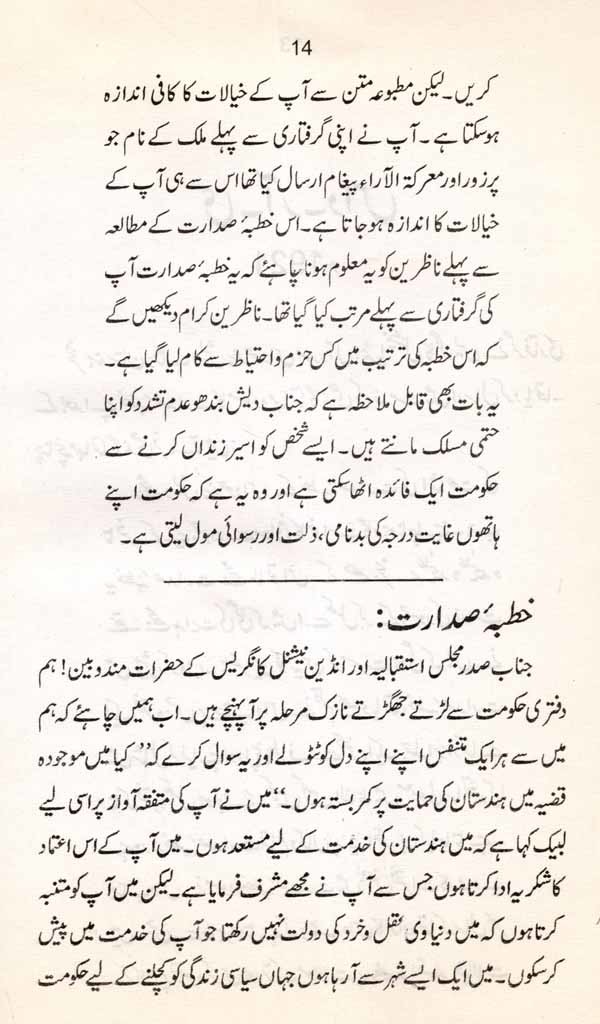 14
کریں۔ لیکن مطبوعہ متن سے آپ کے خیالات کا کافی اندازہ
ہوسکتا ہے۔ آپ نے اپنی گرفتاری سے پہلے ملک کے نام جو
پرزور اور معرکۃ الآراء پیغام ارسال کیا تھا اس سے ہی آپ کے
خیالات کا اندازہ ہوجاتا ہے۔ اس خطبۂ صدارت کے مطالعہ
سے پہلے ناظرین کو یہ معلوم ہونا چاہئے کہ یہ خطبۂ صدارت آپ
کی گرفتاری سے پہلے مرتب کیا گیا تھا۔ ناظرین کرام دیکھیں گے
کہ اس خطبہ کی ترتیب میں کس حزم و احتیاط سے کام لیا گیا ہے۔
یہ بات بھی قابل ملاحظہ ہے کہ جناب دیش بندھو عدم تشدد کو اپنا
حتمی مسلک مانتے ہیں۔ ایسے شخص کو اسیر زنداں کرنے سے
حکومت ایک فائدہ اٹھا سکتی ہے اور وہ یہ ہے کہ حکومت اپنے
ہاتھوں غایت درجہ کی بدنامی، ذلت اور رسوائی مول لیتی ہے۔
خطبۂ صدارت:
جناب صدر مجلس استقبالیہ اور انڈین نیشنل کانگریس کے حضرات مندوبین! ہم
دفتری حکومت سے لڑتے جھگڑتے نازک مرحلہ پر آپہنچے ہیں۔ اب ہمیں چاہئے کہ ہم
میں سے ہر ایک متنفس اپنے اپنے دل کو ٹٹولے اور یہ سوال کرے کہ ”کیا میں موجودہ
قضیہ میں ہندستان کی حمایت پر کمر بستہ ہوں۔“ میں نے آپ کی متفقہ آواز پر اسی لیے
لبیک کہا ہے کہ میں ہندستان کی خدمت کے لیے مستعد ہوں۔ میں آپ کے اس اعتماد
کا شکریہ ادا کرتا ہوں جس سے آپ نے مجھے مشرف فرمایا ہے۔ لیکن میں آپ کو متنبہ
کرتا ہوں کہ میں دنیاوی عقل و خرد کی دولت نہیں رکھتا جو آپ کی خدمت میں پیش
کرسکوں۔ میں ایک ایسے شہر سے آ رہا ہوں جہاں سیاسی زندگی کو کچلنے کے لیے حکومت